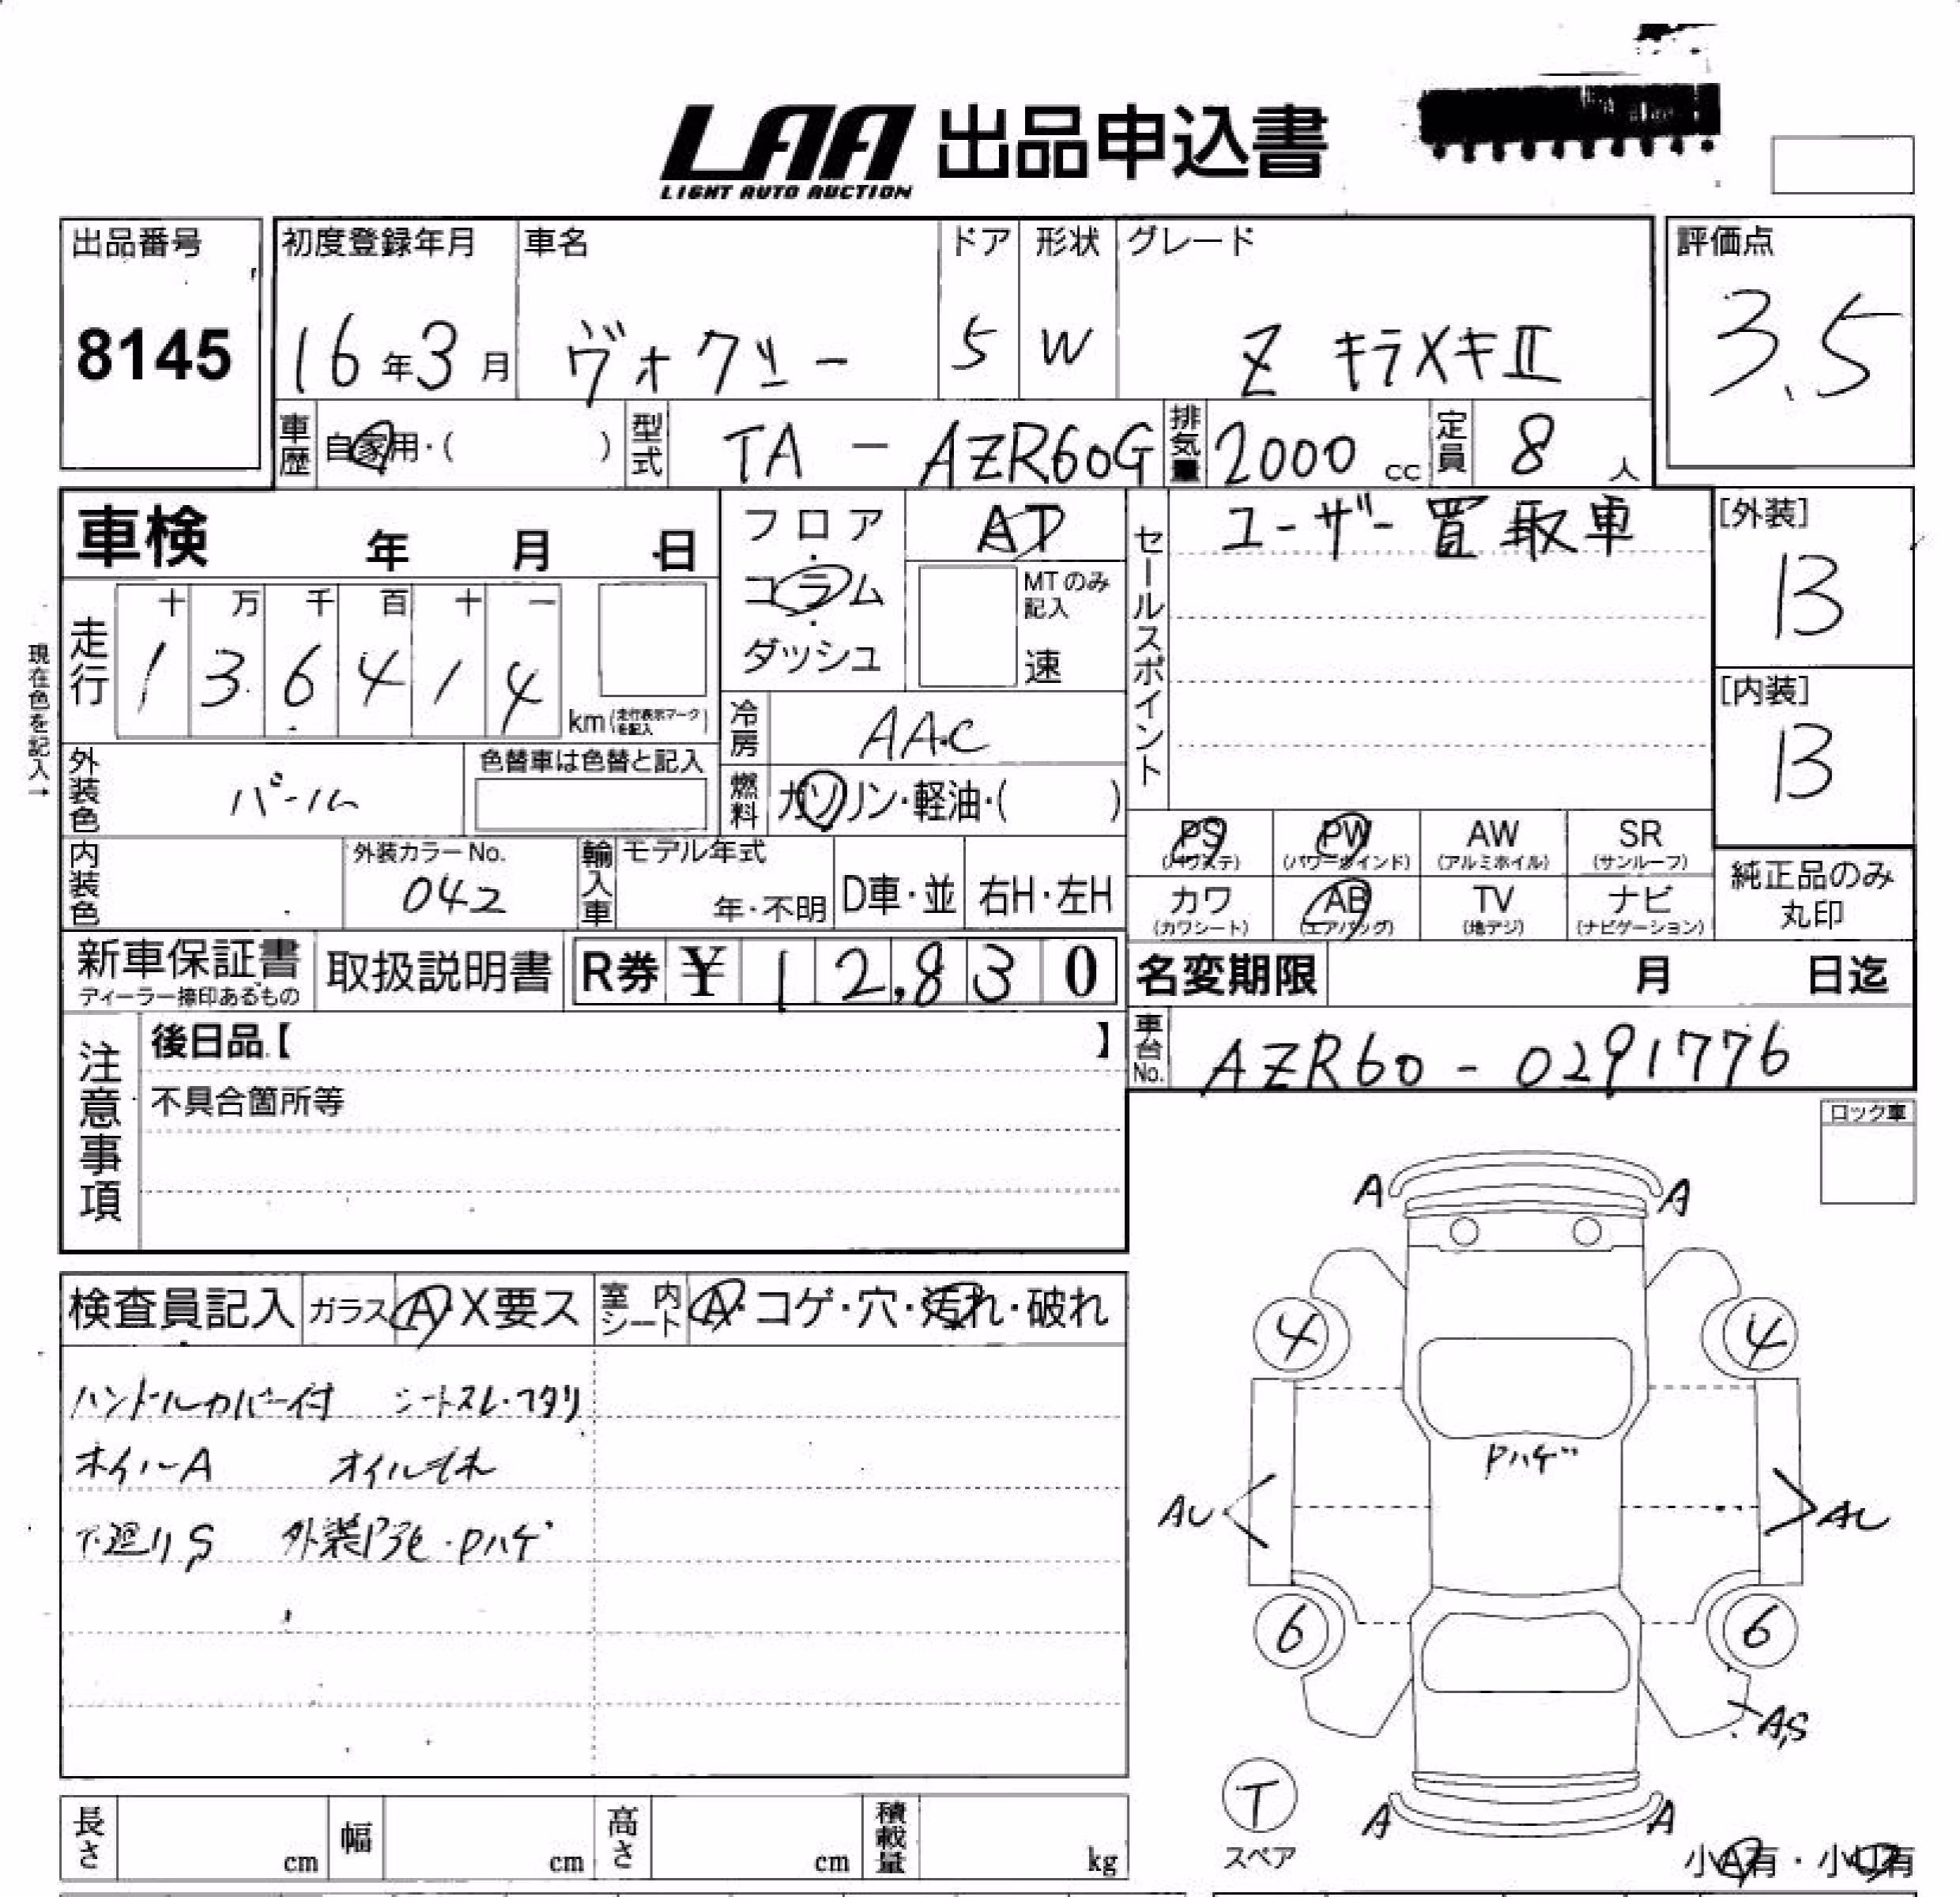 LAA 出品申込書
LIGHT AUTO AUCTION
出品番号 初度登録年月 車名 ドア 形状 グレード 評価点
8145 16年3月 ヴォクシー 5 W Z キラメキⅡ 3.5
車歴 自家用・( ) 型式 TA - AZR60G 排気量 2000 cc 定員 8 人
車検 年 月 日
フロア・コラム・ダッシュ
AT
MTのみ記入
速
セールスポイント
ユーザー買取車
[外装]
B
[内装]
B
現在色を記入→
走行 十 万 千 百 十 一
1 3 6 4 1 4 km (走行表示マークを記入)
冷房 AAC
外装色 パール 色替車は色替と記入
燃料 ガソリン・軽油・( )
内装色 外装カラーNo. 042
輸入車 モデル年式 年・不明 D車・並 右H・左H
PS (パワステ) PW (パワーウインド) AW (アルミホイル) SR (サンルーフ)
カワ (カワシート) AB (エアバッグ) TV (地デジ) ナビ (ナビゲーション)
純正品のみ丸印
新車保証書 ディーラー捺印あるもの 取扱説明書 R券 ¥ 12,830
名変期限 月 日迄
車台No. AZR60 - 0291776
注意事項
後日品【 】
不具合箇所等
ロック車
検査員記入 ガラス A・X要ス 室内シート A・コゲ・穴・汚れ・破れ
ハンドルカバー付 シートスレ・ヘタリ
ホイールA オイルモレ
下廻りS 外装 ・Pハゲ
A A
4 4
Pハゲ
AU AU
6 6
A,S
T
スペア
A A
小A有・小U有
長さ cm 幅 cm 高さ cm 積載量 kg